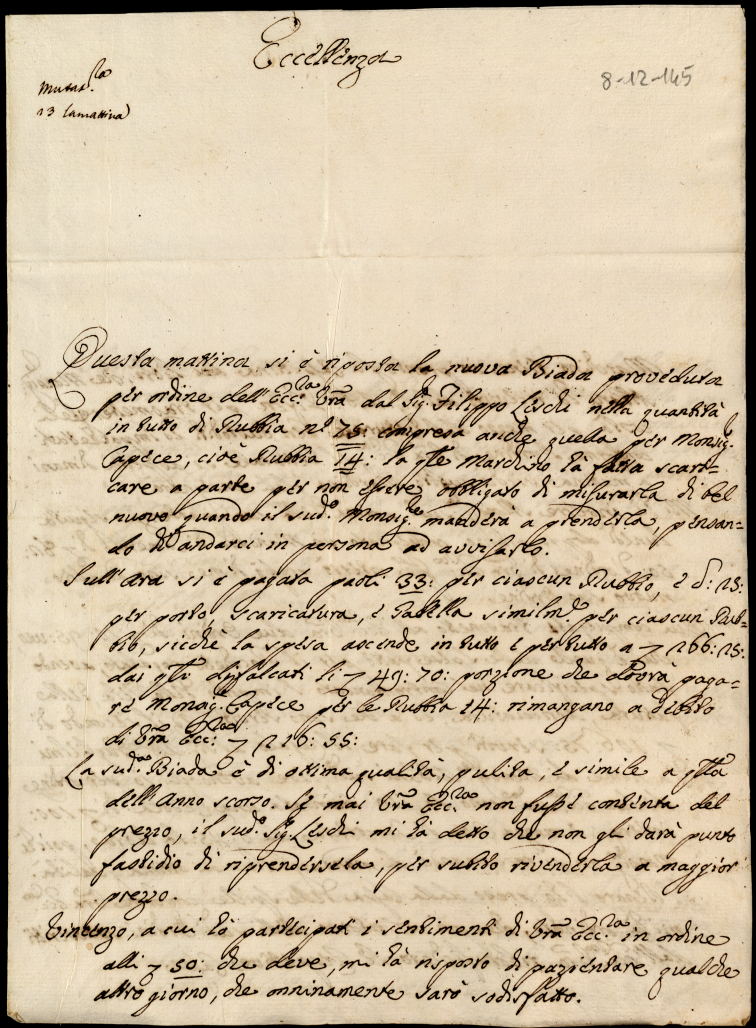 Eccellenza
8-12-145
Questa mattina si è riposta la nuova Biada proveduta
per ordine dell'Ecc.za Vra dal Sig. Filippo Leschi nella quantità
in tutto di Rubbia n.° 75: compresa anche quella per Monsig.
Capece, cioè Rubbia 14: la qle Marchino hà fatta scari=
care a parte per non essere obbligato di misurarla di bel
nuovo quando il sud.° Monsig.re manderà a prenderla, pensan=
do di andarci in persona ad avvisarlo.
Sull'Ara si è pagata paoli 33: per ciascun Rubbio, e d: 25:
per porto, scaricatura, e Gabella similm.e per ciascun Rub=
bio, sicchè la spesa ascende in tutto e per tutto a 266: 25:
dai qli difalcati li 49: 70: porzione che dovrà paga=
re Monsig. Capece per le Rubbia 14: rimangano a debito
di Vra Ecc.za 216: 55:
La sud.a Biada è di ottima qualità, pulita, e simile a qlla
dell'Anno scorso. Se mai Vra Ecc.za non fusse contenta del
prezzo, il sud.° Sig. Leschi mi hà detto che non gli darà punto
fastidio di riprendersela, per subito rivenderla a maggior
prezzo.
Vincenzo, a cui hò participati i sentimenti di Vra Ecc.za in ordine
alli 50: che deve, mi hà risposto di pazientare qualche
altro giorno, che onninamente sarò sodisfatto.